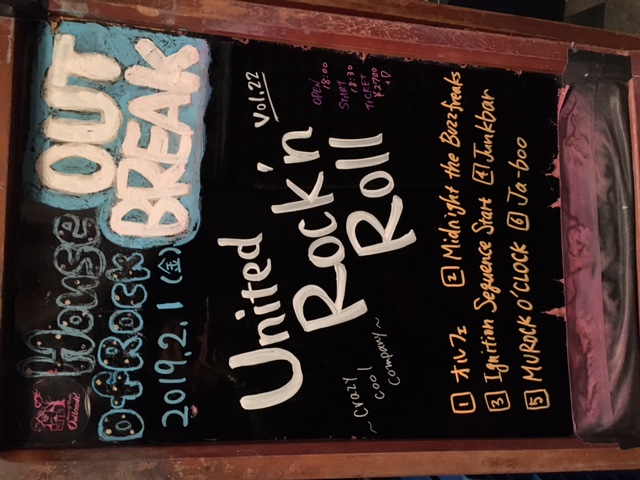 House
OUT
OF ROCK
BREAK
2019.2.1 (金)
United
vol.22
Rock'n
Roll
OPEN
18:00
START
18:30
TICKET
¥2700
+D
~ Crazy
cool
company ~
1 オルフェ 2 Midnight the Buzzfreaks
3 Ignition Sequence Start 4 Junkbar
5 MUROCK O'CLOCK 6 Ja-boo